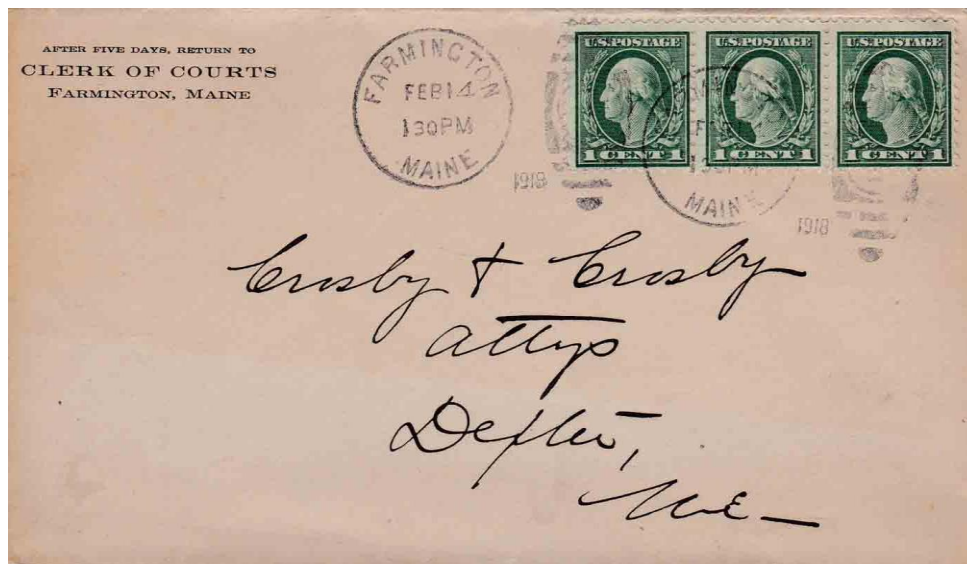 AFTER FIVE DAYS, RETURN TO
CLERK OF COURTS
FARMINGTON, MAINE
FARMINGTON
FEB 14
130PM
MAINE
1918
U.S. POSTAGE
1 CENT 1
U.S. POSTAGE
1 CENT 1
U.S. POSTAGE
1 CENT 1
MAINE
1918
Crosby & Crosby
Attys
Dexter,
Me—